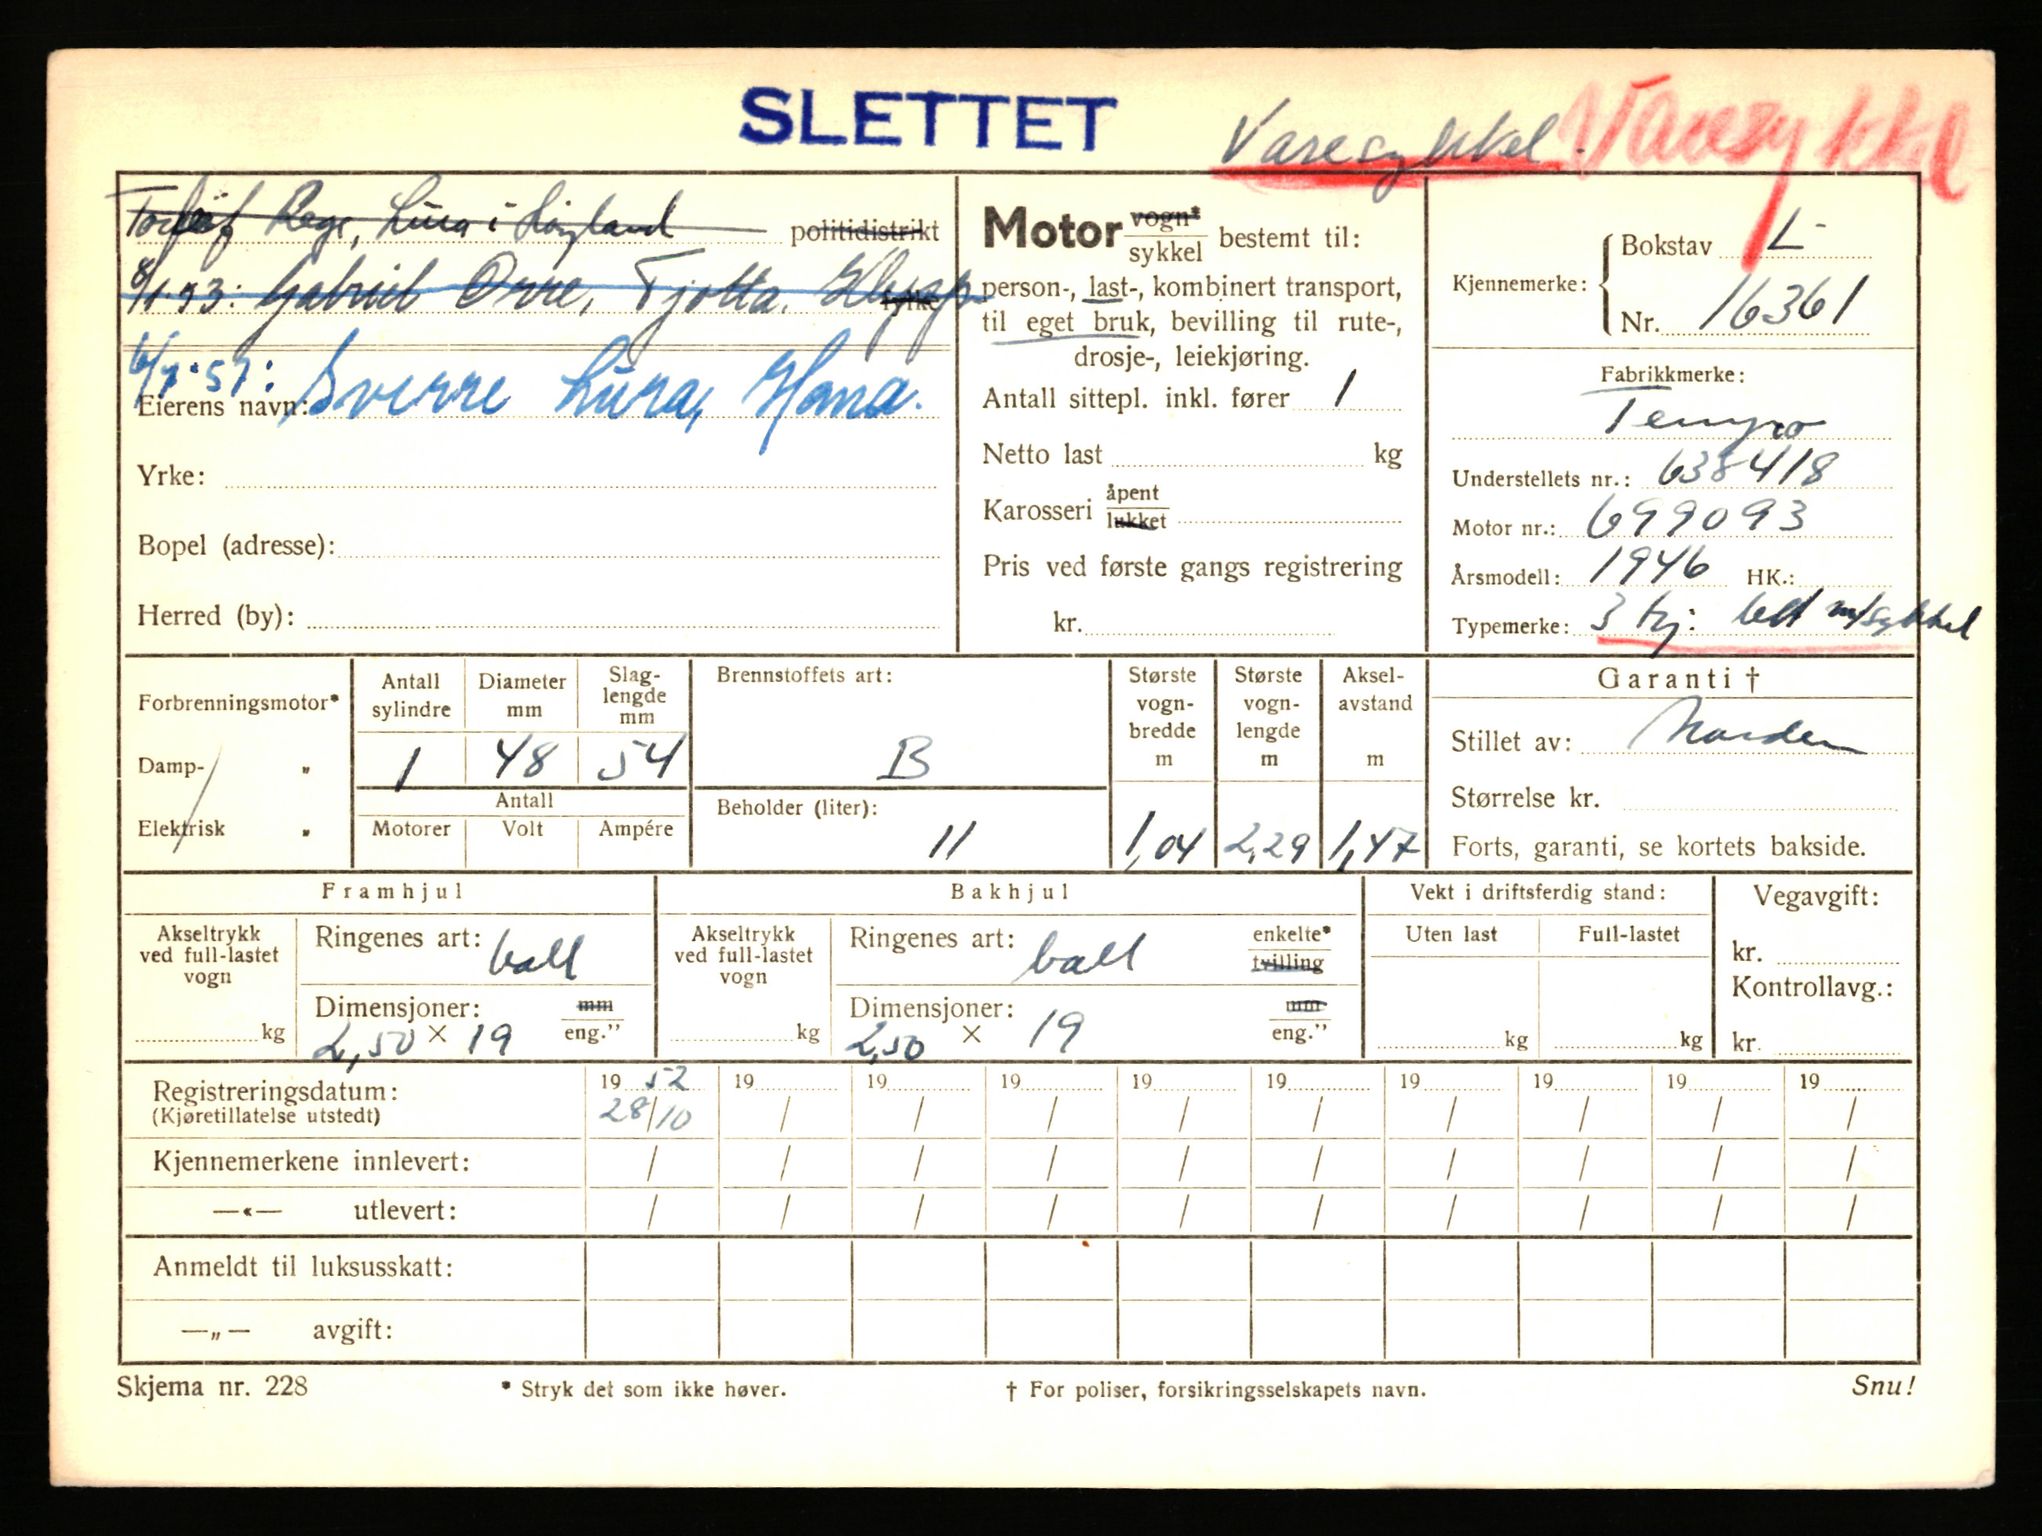 SLETTET
Varesykkel. Varesykkel
Torleif Rege, Lura i Høyland politidistrikt
8/1-53: Gabriel Orre, Tjøtta, Klepp fylke
6/7-57: Sverre Lura, Hana.
Eierens navn:
Yrke:
Bopel (adresse):
Herred (by):
Motor vogn* sykkel bestemt til:
person-, last-, kombinert transport,
til eget bruk, bevilling til rute-,
drosje-, leiekjøring.
Antall sittepl. inkl. fører 1
Netto last kg
Karosseri åpent lukket
Pris ved første gangs registrering
kr.
Kjennemerke: Bokstav L-
Nr. 16361
Fabrikkmerke:
Tempo
Understellets nr.: 638418
Motor nr.: 699093
Årsmodell: 1946 HK.:
Typemerke: 3 hj: lett m/sykkel
Forbrenningsmotor*
Damp- „
Elektrisk „
Antall sylindre
1
Diameter mm
48
Slag-
lengde
mm
54
Antall
Motorer Volt Ampére
Brennstoffets art:
B
Beholder (liter):
11
Største
vogn-
bredde
m
1,04
Største
vogn-
lengde
m
2,29
Aksel-
avstand
m
1,47
Garanti †
Stillet av: Norden
Størrelse kr.
Forts, garanti, se kortets bakside.
Framhjul
Akseltrykk
ved full-lastet
vogn
kg
Ringenes art: ball
Dimensjoner: mm
2,50 × 19 eng.”
Bakhjul
Akseltrykk
ved full-lastet
vogn
kg
Ringenes art: ball enkelte*
tvilling
Dimensjoner: mm
2,50 × 19 eng.”
Vekt i driftsferdig stand:
Uten last Full-lastet
kg kg
Vegavgift:
kr.
Kontrollavg.:
kr.
Registreringsdatum: 19 52 19 19 19 19 19 19 19 19 19
(Kjøretillatelse utstedt) 28/10 / / / / / / / / /
Kjennemerkene innlevert: / / / / / / / / / /
—«— utlevert: / / / / / / / / / /
Anmeldt til luksusskatt:
—„— avgift:
Skjema nr. 228 * Stryk det som ikke høver. † For poliser, forsikringsselskapets navn. Snu!